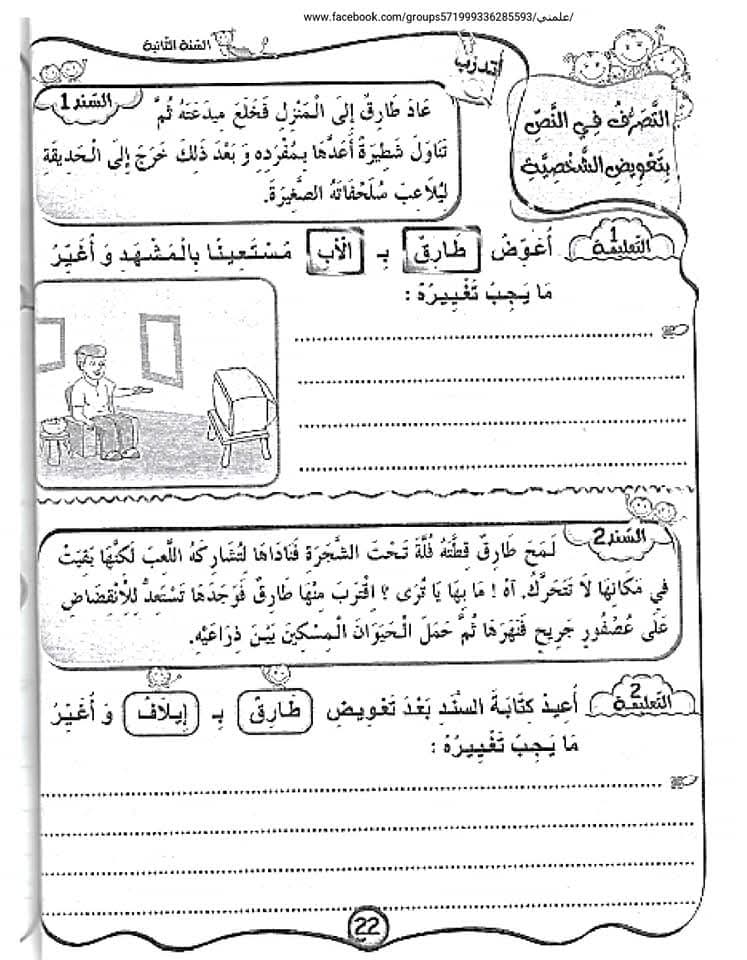 www.facebook.com/groups571999336285593/علمني/
السّنة الثّانية
أتدرّب
التَّصَرُّفُ فِي النَّصِّ
بِتَعْوِيضِ الشَّخْصِيَّة
السّند 1
عَادَ طَارِقٌ إِلَى الْمَنْزِلِ فَخَلَعَ مِيدَعَتَهُ ثُمَّ
تَنَاوَلَ شَطِيرَةً أَعَدَّهَا بِمُفْرَدِهِ وَ بَعْدَ ذَلِكَ خَرَجَ إِلَى الْحَدِيقَةِ
لِيُلَاعِبَ سُلَحْفَاتَهُ الصَّغِيرَةَ.
التّعليمة 1
أُعَوِّضُ طَارِقٌ بِـ الْأَبِ مُسْتَعِينًا بِالْمَشْهَدِ وَ أُغَيِّرُ
مَا يَجِبُ تَغْيِيرُهُ :
السّند 2
لَمَحَ طَارِقٌ قِطَّتَهُ فُلَّةَ تَحْتَ الشَّجَرَةِ فَنَادَاهَا لِتُشَارِكَهُ اللَّعِبَ لَكِنَّهَا بَقِيَتْ
فِي مَكَانِهَا لَا تَتَحَرَّكُ. آهْ ! مَا بِهَا يَا تُرَى ؟ اِقْتَرَبَ مِنْهَا طَارِقٌ فَوَجَدَهَا تَسْتَعِدُّ لِلْاِنْقِضَاضِ
عَلَى عُصْفُورٍ جَرِيحٍ فَنَهَرَهَا ثُمَّ حَمَلَ الْحَيَوَانَ الْمِسْكِينَ بَيْنَ ذِرَاعَيْهِ.
التّعليمة 2
أُعِيدُ كِتَابَةَ السَّنَدِ بَعْدَ تَعْوِيضِ طَارِقٌ بِـ إِيلَافُ وَ أُغَيِّرُ
مَا يَجِبُ تَغْيِيرُهُ :
22